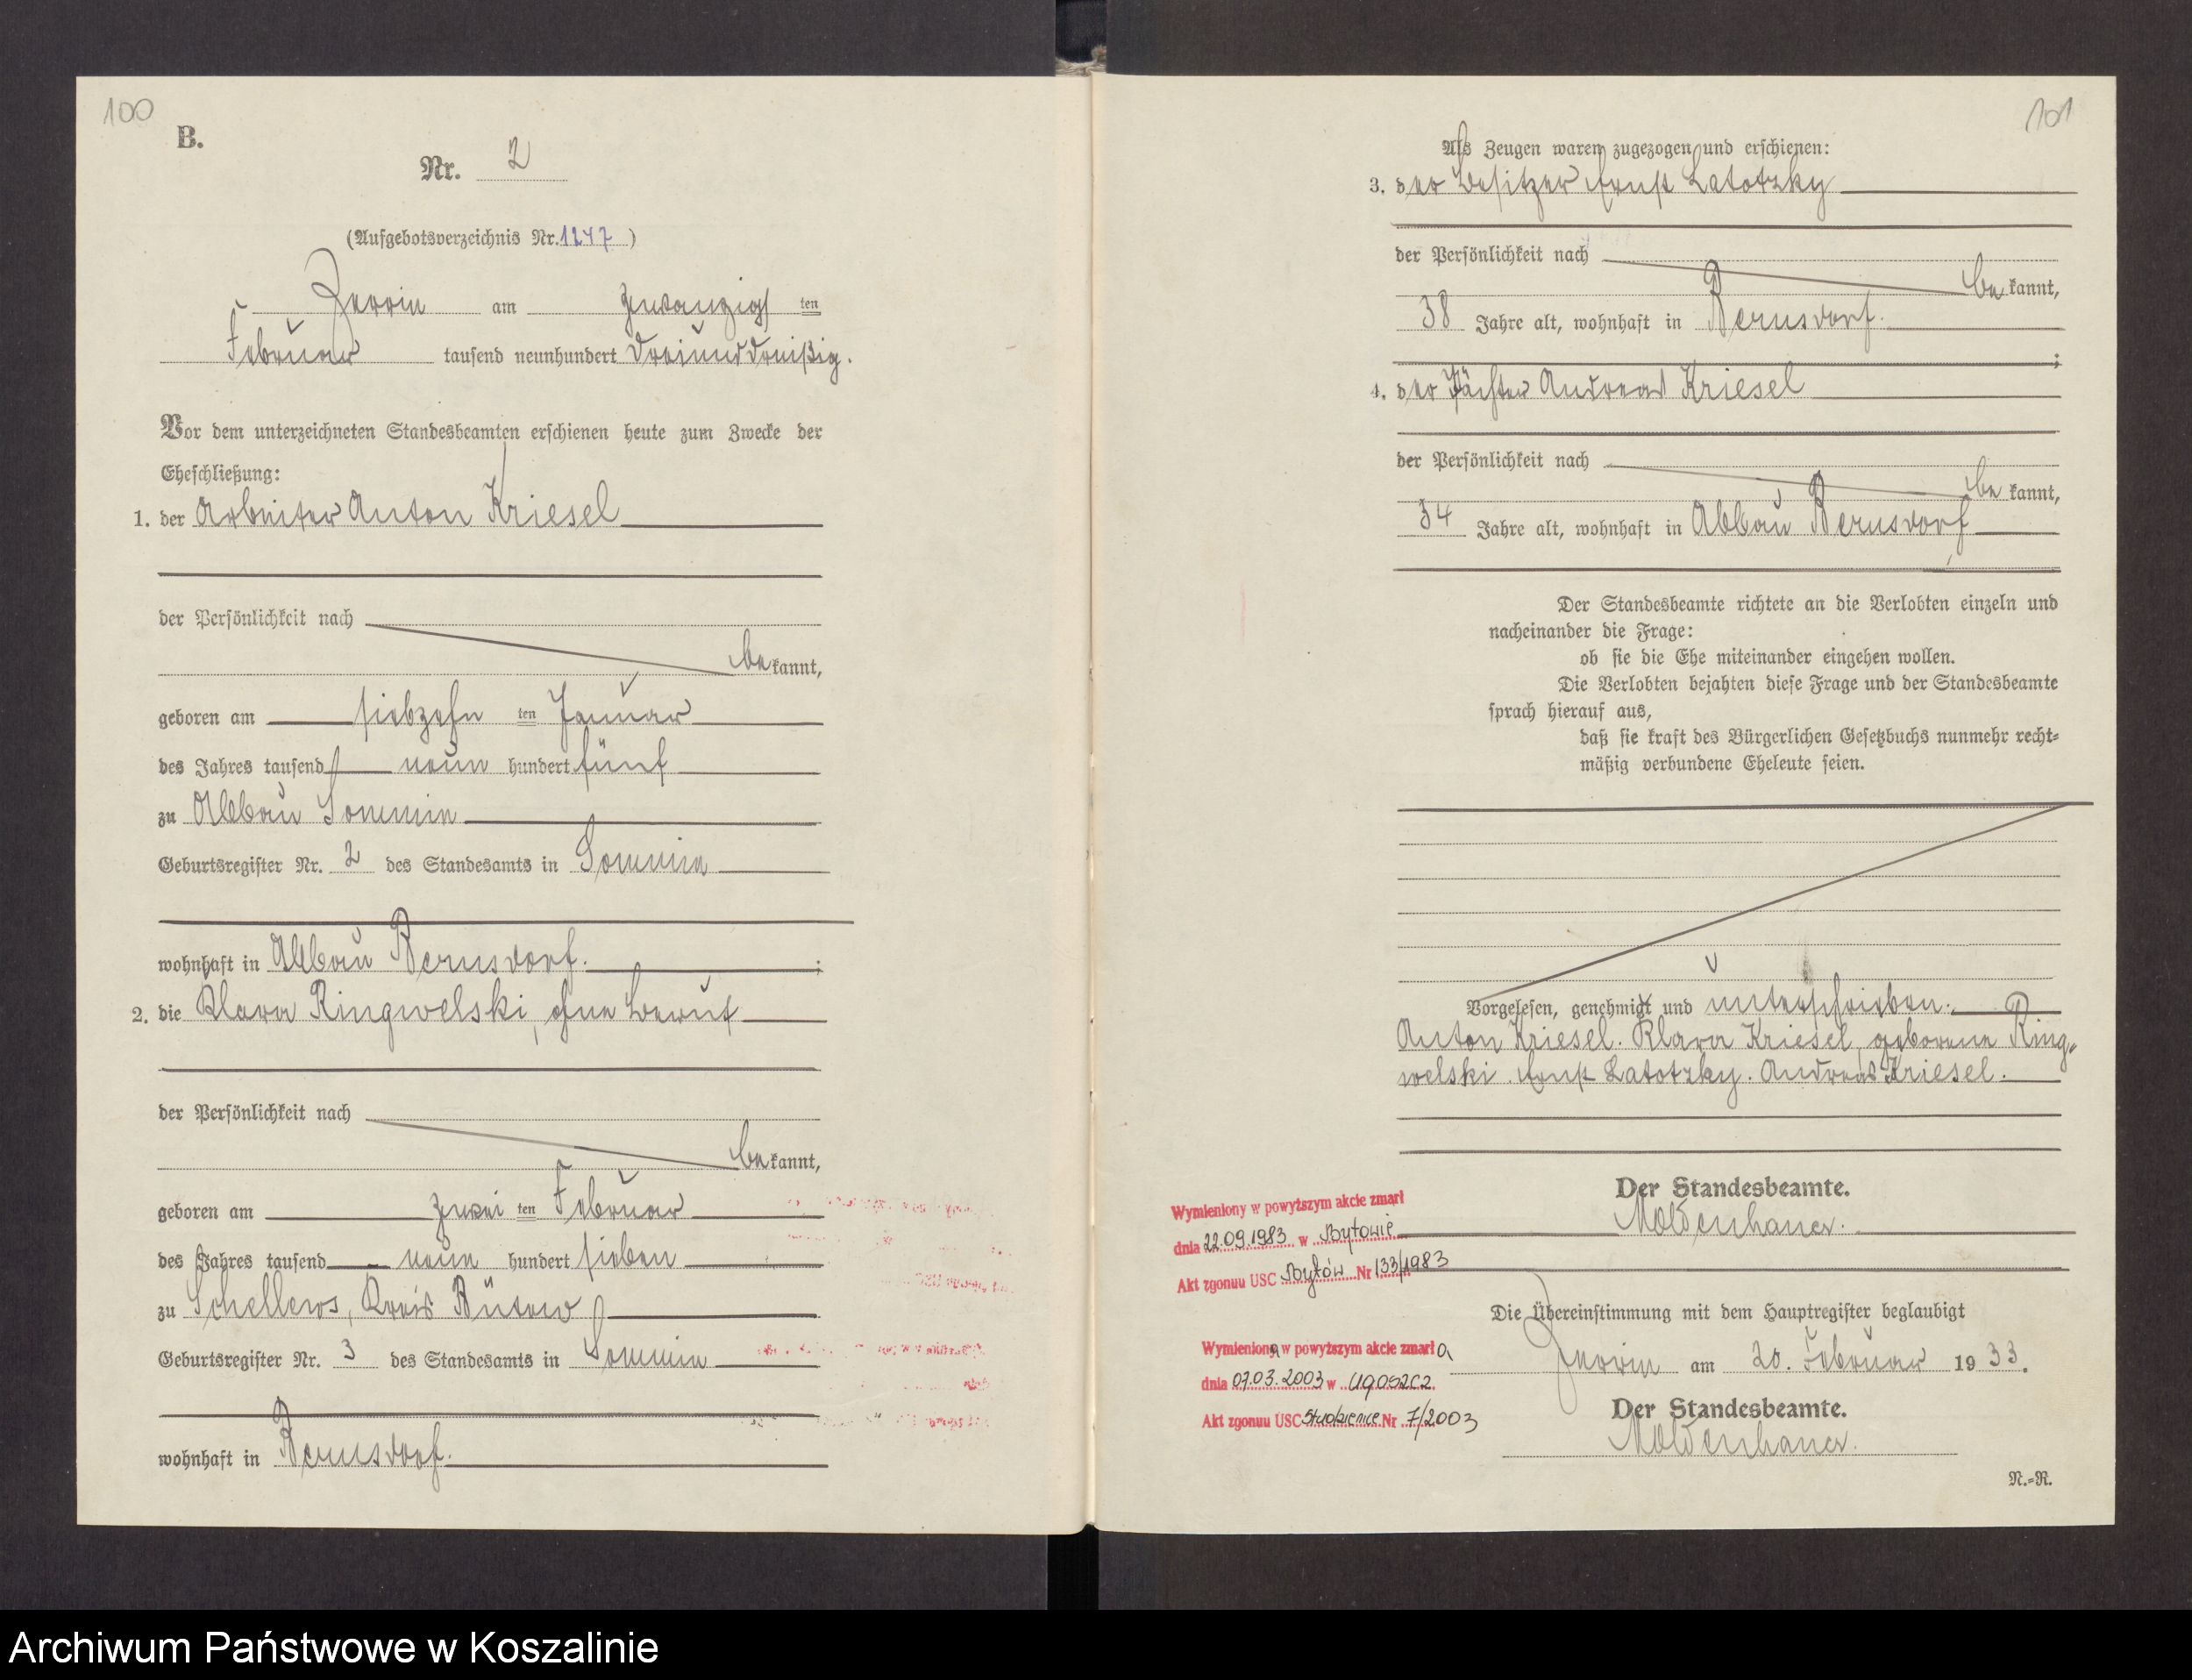 100
B.
Nr. 2
(Aufgebotsverzeichnis Nr. 1247)
Zerrin am zwanzigsten
Februar tausend neunhundert dreiunddreißig.
Vor dem unterzeichneten Standesbeamten erschienen heute zum Zwecke der
Eheschließung:
1. der Arbeiter Anton Kriesel
der Persönlichkeit nach
bekannt,
geboren am siebzehnten Januar
des Jahres tausend neun hundert fünf
zu Abbau Sommin
Geburtsregister Nr. 2 des Standesamts in Sommin
wohnhaft in Abbau Bernsdorf.;
2. die Klara Ringwelski, ohne Beruf
der Persönlichkeit nach
bekannt,
geboren am zweiten Februar
des Jahres tausend neun hundert sieben
zu Schellers, Kreis Bütow
Geburtsregister Nr. 3 des Standesamts in Sommin
wohnhaft in Bernsdorf.
101
Als Zeugen waren zugezogen und erschienen:
3. der Besitzer Ernst Latotzky
der Persönlichkeit nach
bekannt,
38 Jahre alt, wohnhaft in Bernsdorf.
;
4. der Pächter Andreas Kriesel
der Persönlichkeit nach
bekannt,
34 Jahre alt, wohnhaft in Abbau Bernsdorf
Der Standesbeamte richtete an die Verlobten einzeln und
nacheinander die Frage:
ob sie die Ehe miteinander eingehen wollen.
Die Verlobten bejahten diese Frage und der Standesbeamte
sprach hierauf aus,
daß sie kraft des Bürgerlichen Gesetzbuchs nunmehr recht-
mäßig verbundene Eheleute seien.
Vorgelesen, genehmigt und unterschrieben:
Anton Kriesel. Klara Kriesel geborene Ring-
welski. Ernst Latotzky. Andreas Kriesel.
Der Standesbeamte.
Moldenhauer.
Wymieniony w powyższym akcie zmarł
dnia 22.09.1983 w Bytowie
Akt zgonu USC Bytów Nr 133/1983
Die Übereinstimmung mit dem Hauptregister beglaubigt
Zerrin am 20. Februar 1933.
Der Standesbeamte.
Moldenhauer.
Wymieniona w powyższym akcie zmarła
dnia 07.03.2003 w Ugoszcz
Akt zgonu USC Studzienice Nr 7/2003
N.-R.
Archiwum Państwowe w Koszalinie